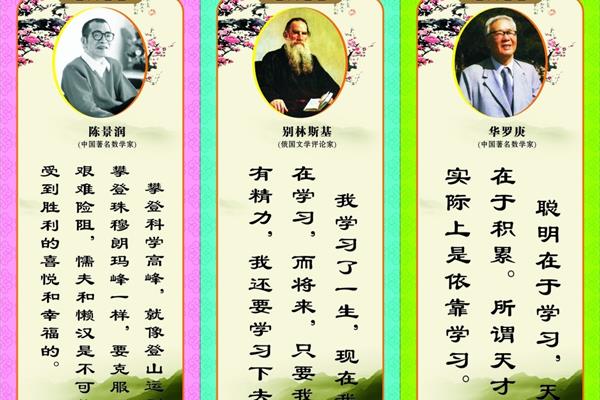 陈景润
(中国著名数学家)
攀登科学高峰，就像登山运
攀登珠穆朗玛峰一样，要克服
艰难险阻，懦夫和懒汉是不可
受到胜利的喜悦和幸福的。
别林斯基
(俄国文学评论家)
我学习了一生，现在我
在学习，而将来，只要我
有精力，我还要学习下去
华罗庚
(中国著名数学家)
聪明在于学习，天
在于积累。所谓天才
实际上是依靠学习。